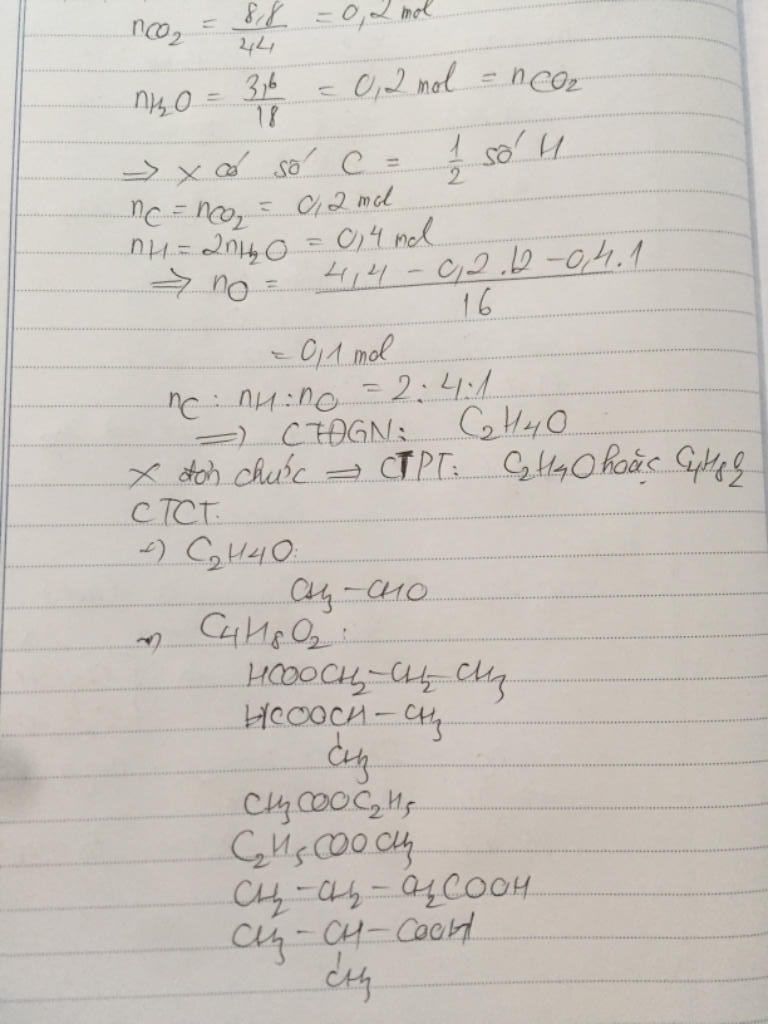 nCO2 = 8,8/44 = 0,2 mol
nH2O = 3,6/18 = 0,2 mol = nCO2
=> X có số C = 1/2 số H
nC = nCO2 = 0,2 mol
nH = 2nH2O = 0,4 mol
=> nO = (4,4 - 0,2.12 - 0,4.1)/16
= 0,1 mol
nC : nH : nO = 2:4:1
=> CTĐGN: C2H4O
X đơn chức => CTPT: C2H4O hoặc C4H8O2
CTCT:
+) C2H4O:
CH3-CHO
+) C4H8O2:
HCOOCH2-CH2-CH3
HCOOCH-CH3
CH3
CH3COOC2H5
C2H5COOCH3
CH3-CH2-CH2COOH
CH3-CH-COOH
CH3